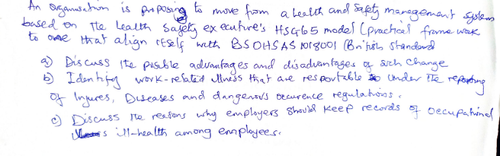 An organisation is proposing to move from a health and safety management system
based on the health safety executive's HSG65 model (practical frame work
to one that align itself with BSOHSAS 1018001 (British standard
a) Discuss the possible advantages and disadvantages of such change
b) Identify work-related illness that are reportable under the reporting
of Injures, Diseases and dangerous occurence regulations.
c) Discuss the reasons why employers should keep records of occupational
ill-health among employees.